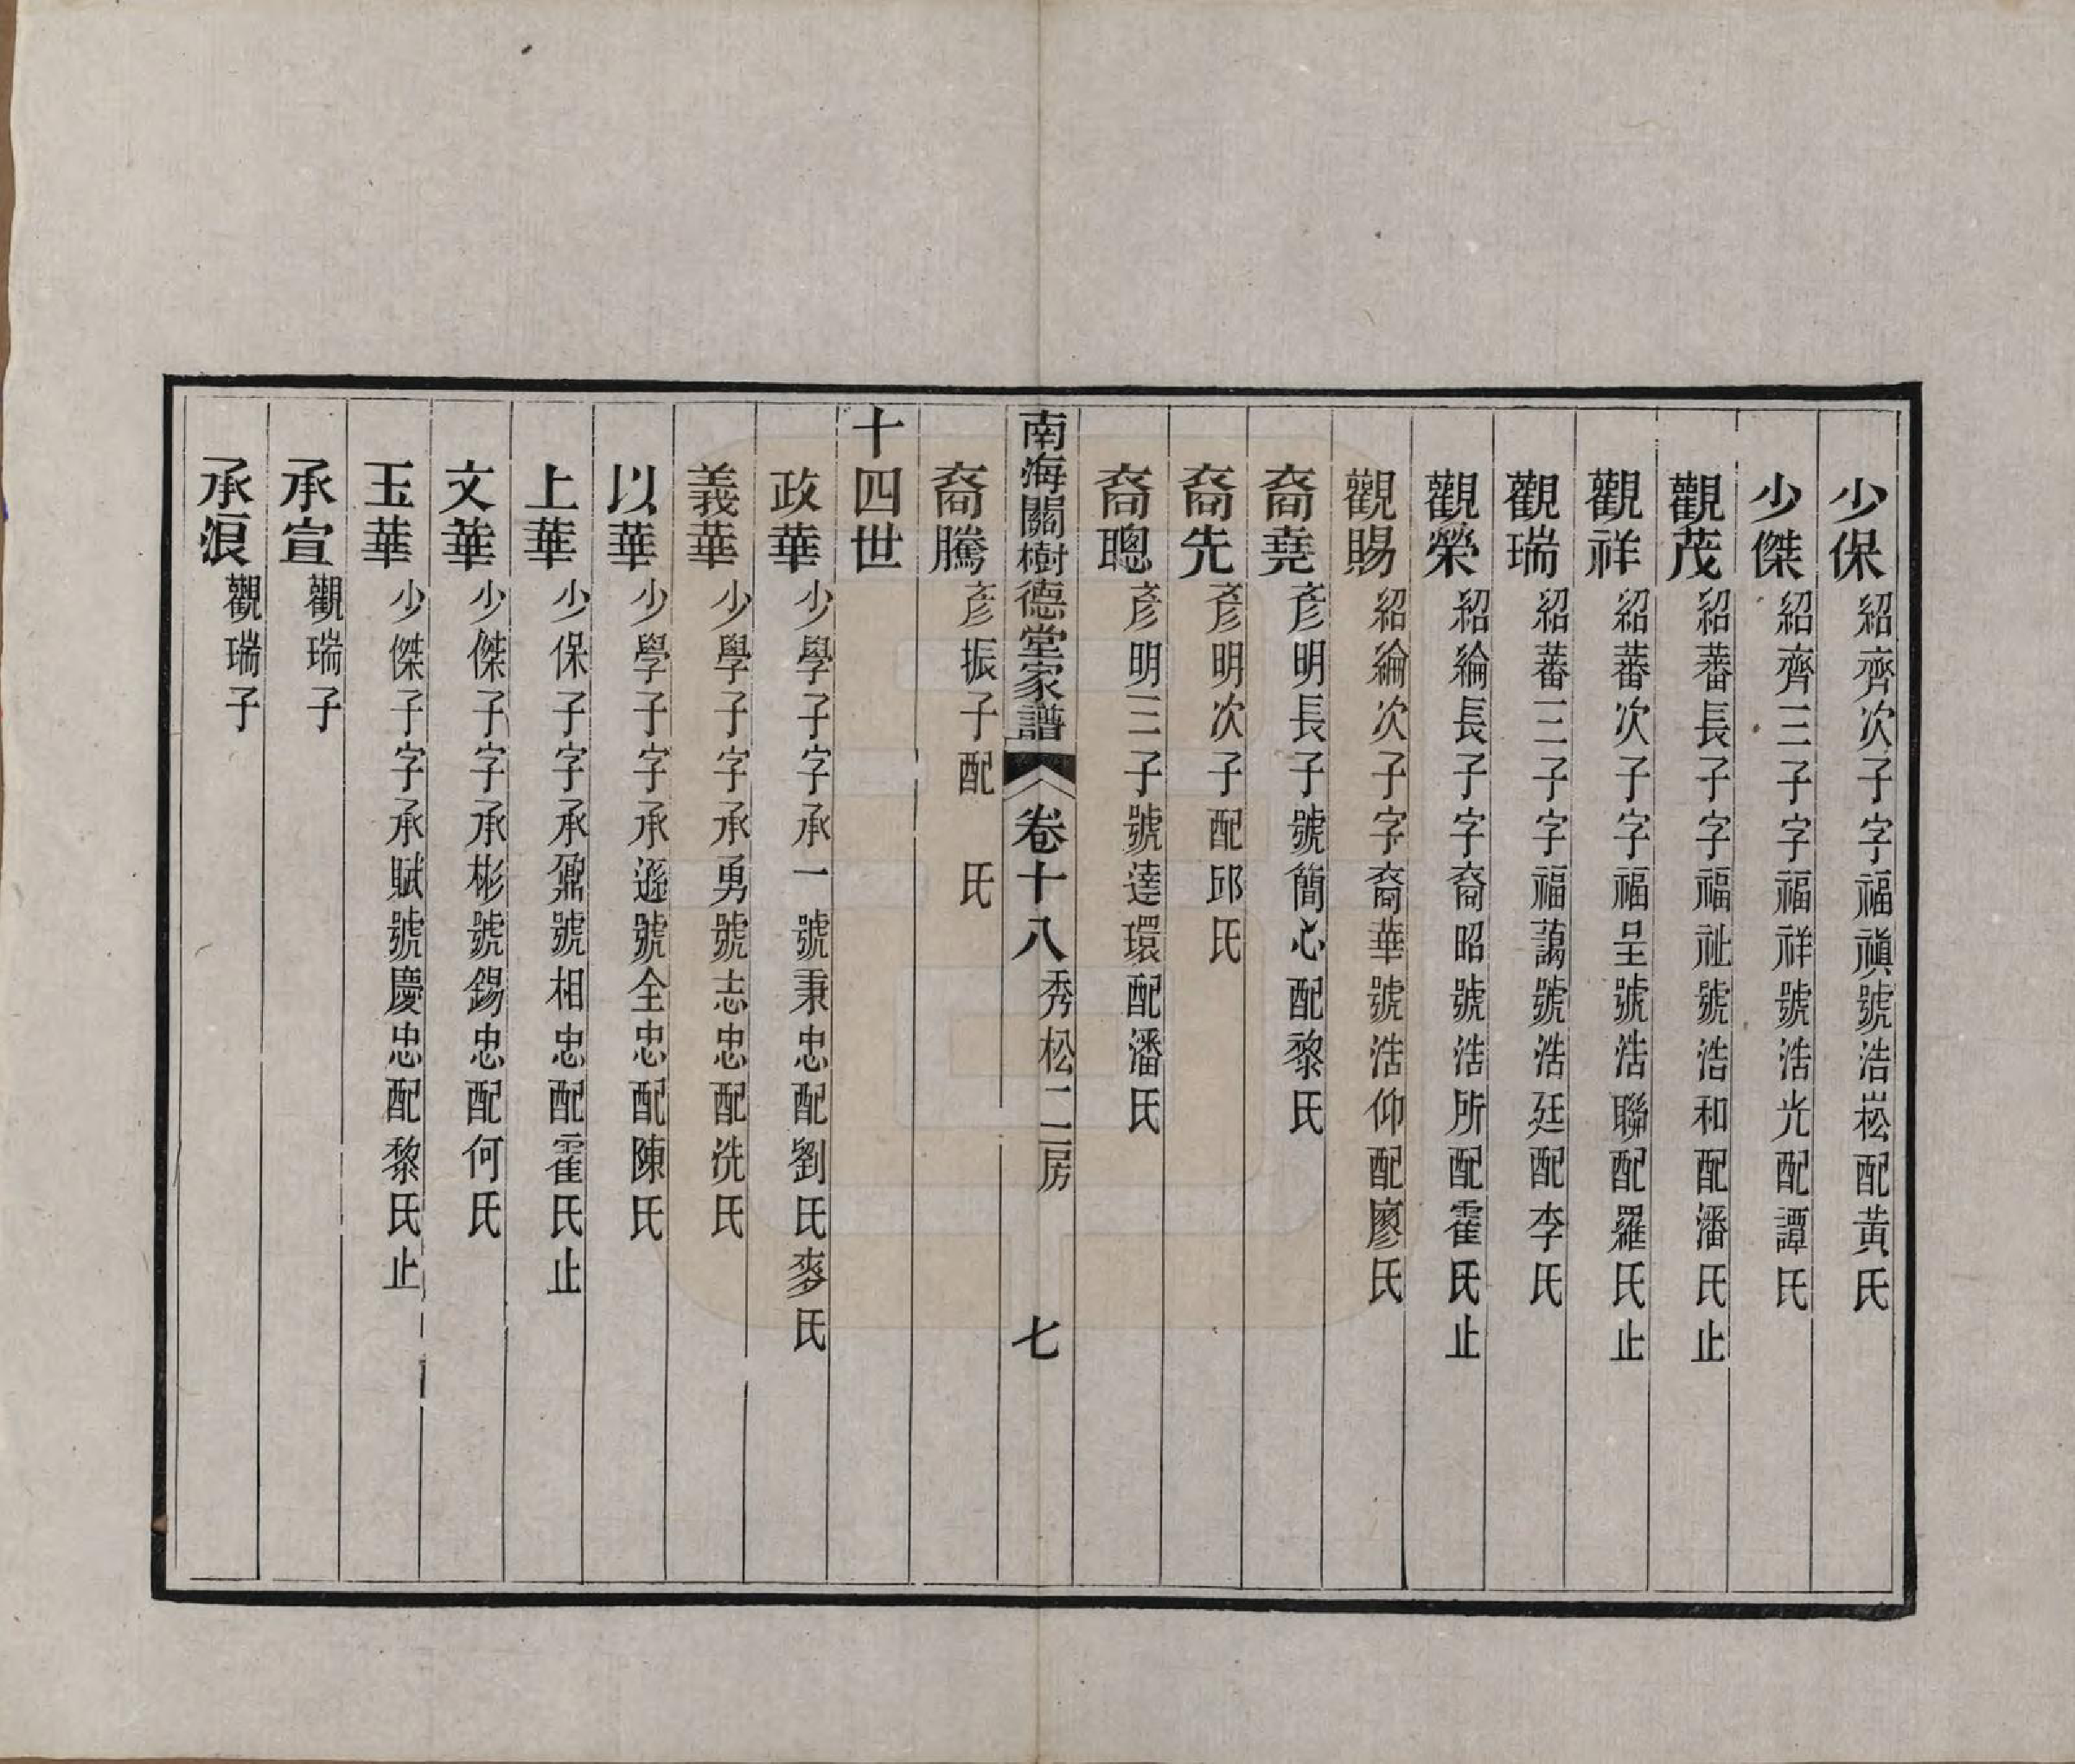 少保紹齊次子字福禛號浩崧配黃氏
少傑紹齊三子字福祥號浩光配譚氏
觀茂紹蕃長子字福祉號浩和配潘氏止
觀祥紹蕃次子字福呈號浩聯配羅氏止
觀瑞紹蕃三子字福藹號浩廷配李氏
觀榮紹綸長子字裔昭號浩所配霍氏止
觀賜紹綸次子字裔華號浩仰配廖氏
裔堯彥明長子號簡心配黎氏
裔先彥明次子配邱氏
裔聰彥明三子號達環配潘氏
南海關樹德堂家譜 卷十八 秀松二房 七
裔騰彥振子配 氏
十四世
政華少學子字承一號秉忠配劉氏麥氏
義華少學子字承勇號志忠配洗氏
以華少學子字承遜號全忠配陳氏
上華少保子字承鼐號相忠配霍氏止
文華少傑子字承彬號錫忠配何氏
玉華少傑子字承賦號慶忠配黎氏止
承宣觀瑞子
承滖觀瑞子